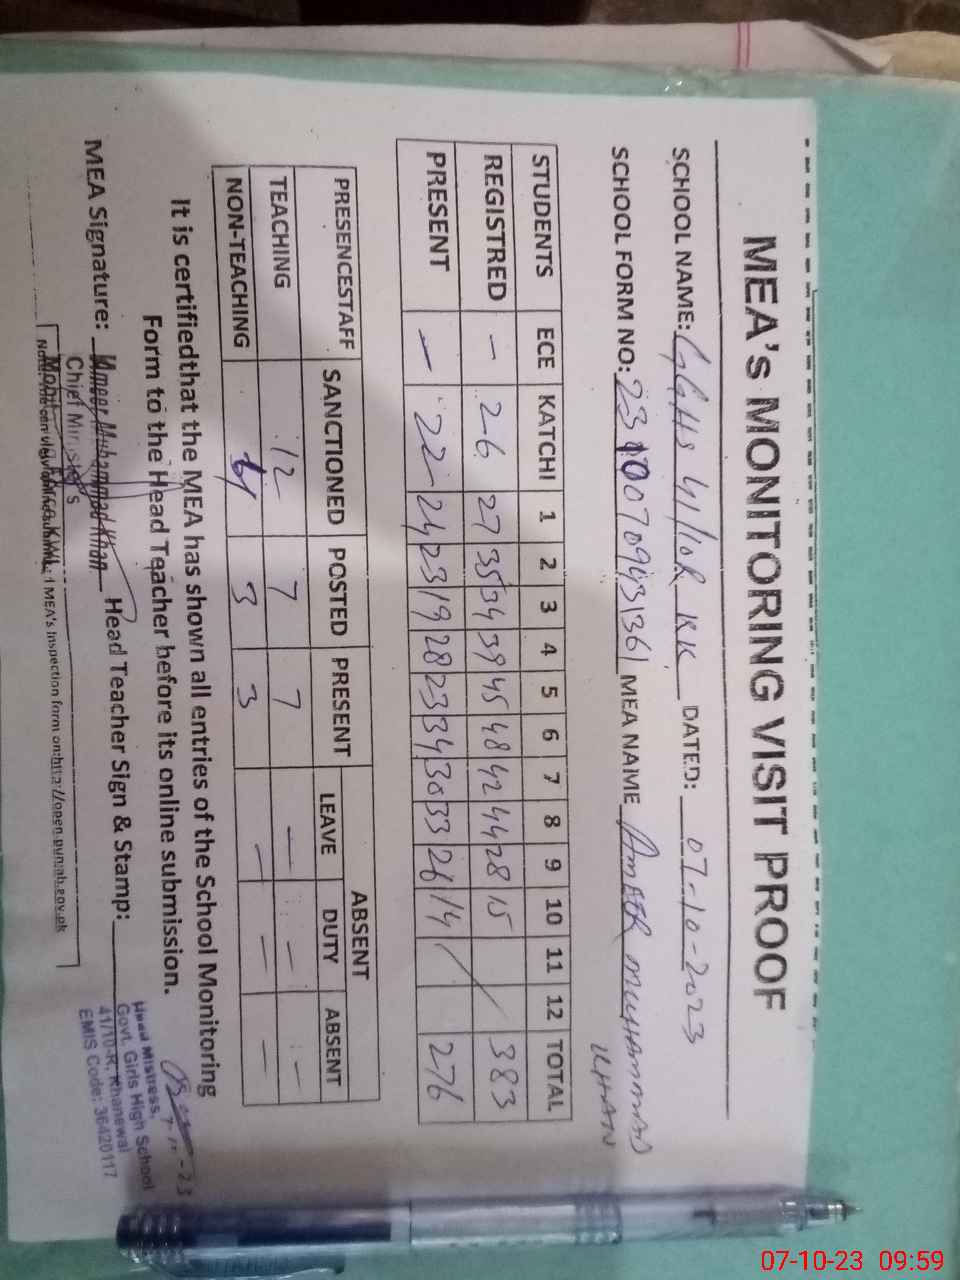 MEA's MONITORING VISIT PROOF
SCHOOL NAME: GGHS 41/10R KK DATED: 07-10-2023
SCHOOL FORM NO: MEA NAME AMEER MUHAMMAD
KHAN
STUDENTS ECE KATCHI 1 2 3 4 5 6 7 8 9 10 11 12 TOTAL
REGISTRED - 26 27 35 34 39 45 48 42 44 28 15 383
PRESENT - 22 24 23 19 28 23 34 30 33 26 14 276
PRESENCESTAFF SANCTIONED POSTED PRESENT ABSENT
LEAVE DUTY ABSENT
TEACHING 12 7 7 - - -
NON-TEACHING 3 3 - - -
It is certifiedthat the MEA has shown all entries of the School Monitoring
Form to the Head Teacher before its online submission.
MEA Signature: Head Teacher Sign & Stamp:
Ameer Muhammad Khan
Chief Minister's
MEA's Inspection form on:http://open.punjab.gov.pk
Head Mistress,
Govt. Girls High School
41/10-R, Khanewal
EMIS Code: 36420117
07-10-23 09:59